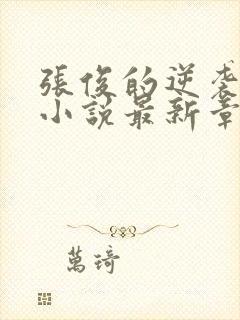 張俊的逆襲
小說最新章
萬琦